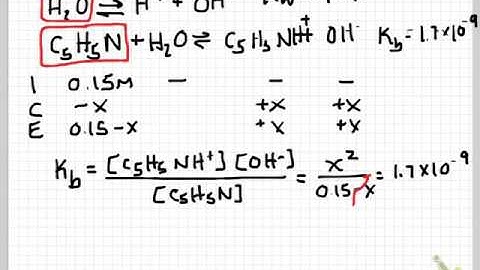 H₂O ⇌ H⁺ + OH⁻
C₅H₅N + H₂O ⇌ C₅H₅NH⁺ OH⁻ K_b = 1.7×10⁻⁹
I 0.15M — — —
C -X +X +X
E 0.15-X +X +X
K_b = [C₅H₅NH⁺][OH⁻] / [C₅H₅N] = X² / 0.15-X = 1.7×10⁻⁹